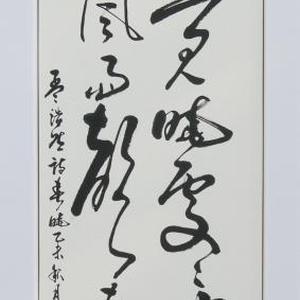 覺曉處處
風雨聲花
孟浩然詩春曉乙未秋月